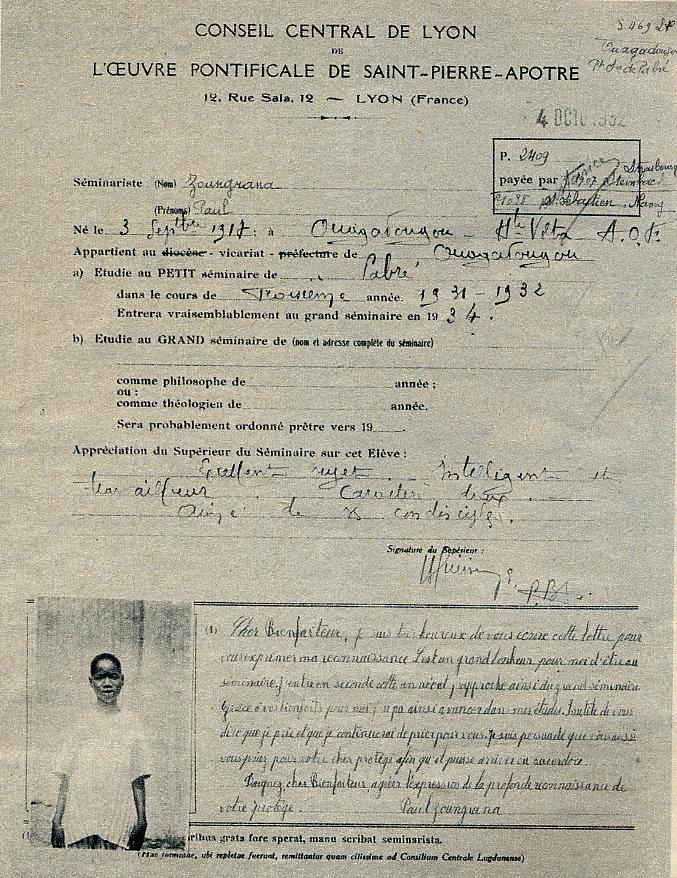 CONSEIL CENTRAL DE LYON
DE
L'ŒUVRE PONTIFICALE DE SAINT-PIERRE-APOTRE
12, Rue Sala, 12 — LYON (France)
S.469
Ouagadougou
Pt Sre de Pabré
4 OCTO 1932
P. 2409
payée par
Strasbourg
St Sébastien. Nancy
Séminariste (Nom) Zoungrana
(Prénoms) Paul
Né le 3 Septbre 1917 ; à Ouagadougou - Hte Volta A.O.F.
Appartient au diocèse - vicariat - préfecture de Ouagadougou
a) Etudie au PETIT séminaire de Pabré
dans le cours de Troisième année. 1931-1932
Entrera vraisemblablement au grand séminaire en 1934.
b) Etudie au GRAND séminaire de (nom et adresse complète du séminaire)
comme philosophe de année ;
ou :
comme théologien de année.
Sera probablement ordonné prêtre vers 19
Appréciation du Supérieur du Séminaire sur cet Elève :
Excellent sujet. Intelligent et
travailleur. Caractère doux
Aimé de ses condisciples.
Signature du Supérieur :
(1) Cher Bienfaiteur, je suis très heureux de vous écrire cette lettre pour
vous exprimer ma reconnaissance. C'est un grand bonheur pour moi d'être au
séminaire. J'entre en seconde cette année et j'approche ainsi du grand séminaire.
Grâce à vos bienfaits pour moi, j'ai pu ainsi avancer dans mes études. Inutile de vous
dire que je prie et que je continuerai de prier pour vous. Je suis persuadé que vous aussi
vous priez pour votre cher protégé afin qu'il puisse arriver au sacerdoce.
Daignez, cher Bienfaiteur, agréer l'expression de la profonde reconnaissance de
votre protégé. Paul Zoungrana
(1) ribus grata fore sperat, manu scribat seminarista.
(Hae formulae, ubi repletae fuerunt, remittantur quam citissime ad Consilium Centrale Lugdunense)